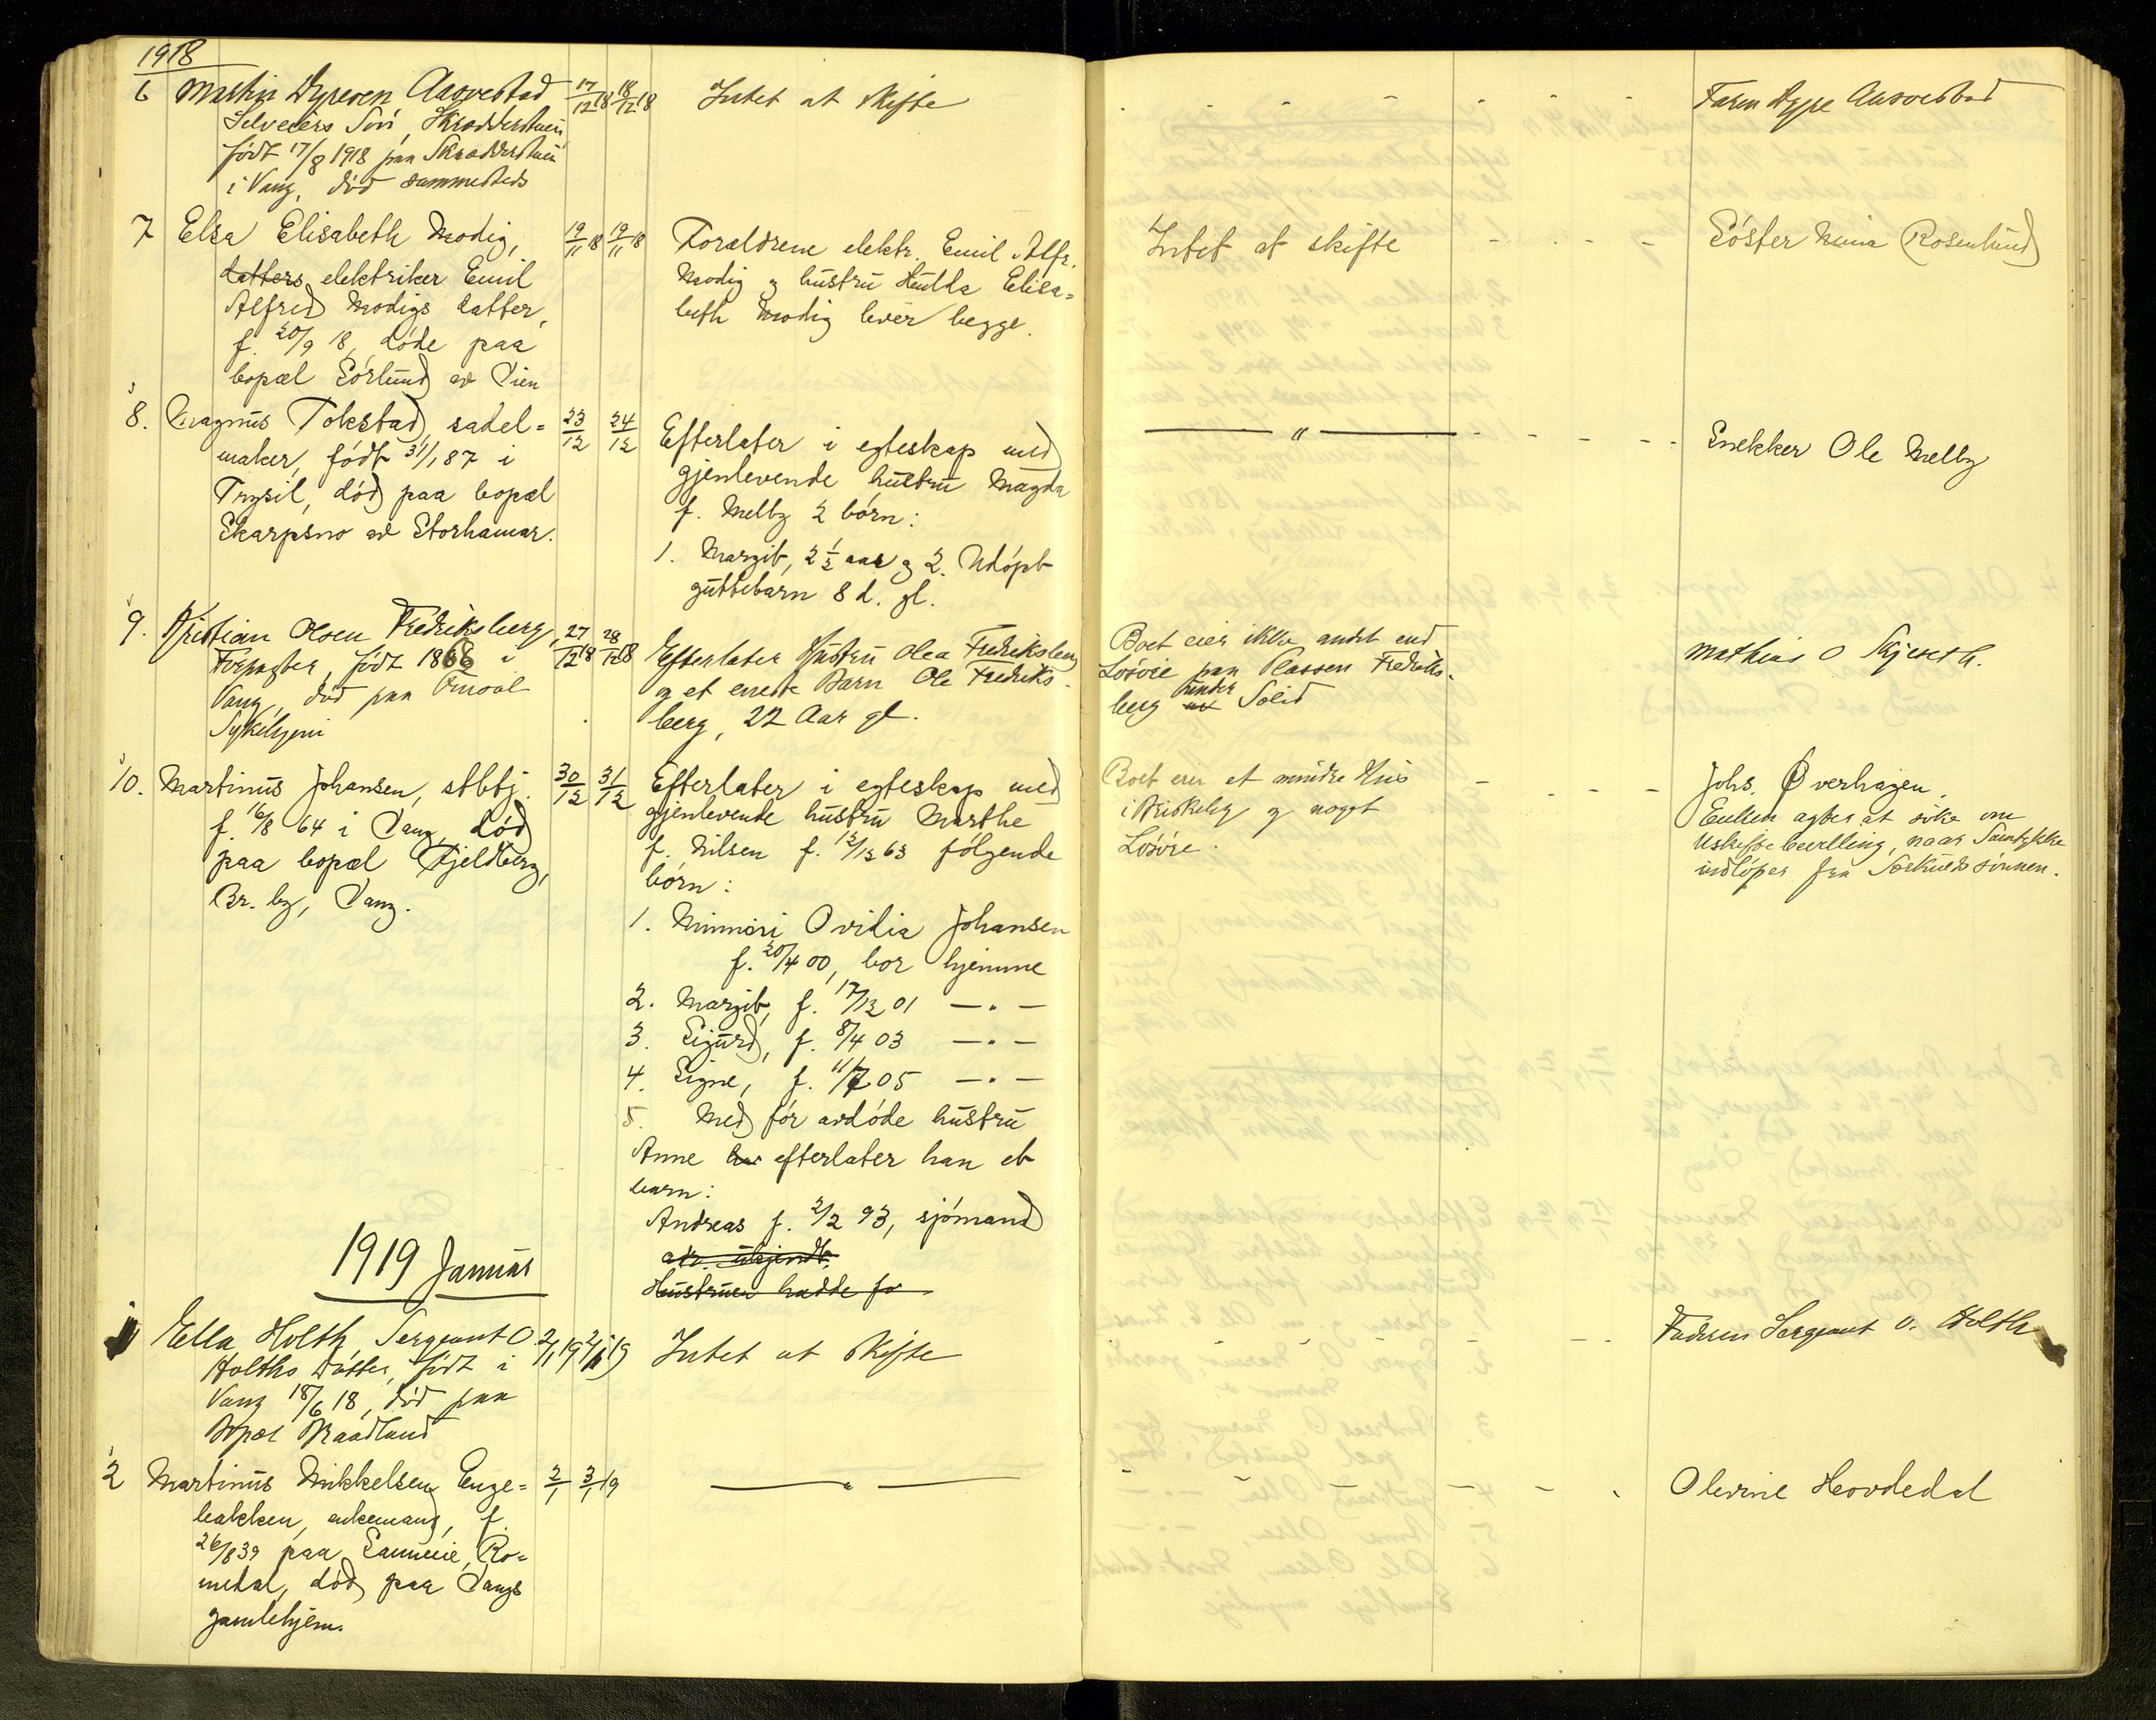 1918
6 Martin Dyresen Aasvestad 17/12 18 18/12 18 Intet at skifte - - - - - - Faren Dyre Aasvestad
Selveiers Søn, Skrædderstuen
født 17/8 1918 paa Skrædderstuen
i Vang, død sammesteds
7 Elsa Elisabeth Modig, 19/11 18 19/11 18 Forældrene elektr. Emil Alfr. Intet at skifte - - - - Søster Mina (Rosenlund)
datters elektriker Emil Modig og hustru Hulda Elisa=
Alfred Modigs datter, beth Modig lever begge.
f. 20/9 18, døde paa
bopæl Sørlund av Vien
8. Magnus Tokstad, sadel= 23/12 24/12 Efterlater i egteskap med — " — - - - - Snekker Ole Melby
maker, født 31/1 87 i gjenlevende hustru Magda
Trysil, død paa bopæl f. Melby 2 børn:
Skarpsno av Storhamar. 1. Margit, 2 1/2 aar og 2. Udøpt
guttebarn 8 d. gl.
9. Kristian Olsen Fredriksberg, 27/12 18 28/12 18 Efterlater Hustru Olea Fredriksberg Boet eier ikke andet end Mathias O Skjeseth.
Forpagter, født 1866 i og et eneste Barn Ole Fredriks- Løsøre paa Plassen Fredriks-
Vang, død paa berg, 22 Aar gl. berg av under
Sykehjem
10. Martinus Johansen, stbbtj. 30/12 31/12 Efterlater i egteskap med Boet eier et mindre Hus - - - - Johs. Øverhagen.
f. 16/8 64 i Vang, død gjenlevende hustru Marthe i Briskeby og noget Enken agter at søke om
paa bopæl Fjeldberg, f. Nilsen f. 12/12 63 følgende Løsøre. Uskiftebevilling, naar Samtykke
Br. by, Vang. børn: indløper fra Særkuldssønnen.
1. Minmori Ovidia Johansen
f. 20/4 00, bor hjemme
2. Margit, f. 17/12 01 — " —
3. Sigurd, f. 8/4 03 — " —
4. Signe, f. 11/7 05 — " —
5. Med før avdøde hustru
Anne har efterlater han et
barn:
Andreas f. 2/2 93, sjømand
adr. ukjendt.
Hustruen hadde før
1919 Januar
1 Ella Holth, Sergeant O. 2/1 19 2/1 19 Intet at skifte - - - Faderen Sergeant O. Holth
Holths Datter, født i
Vang 18/6 18, død paa
Bopæl Braatlund
2 Martinus Mikkelsen Enge= 2/1 3/1 19 — " — - - - - - - Olevine Hovdedal
bakken, enkemand, f.
26/8 39 paa Ro=
medal, død paa Vangs
gamlehjem.